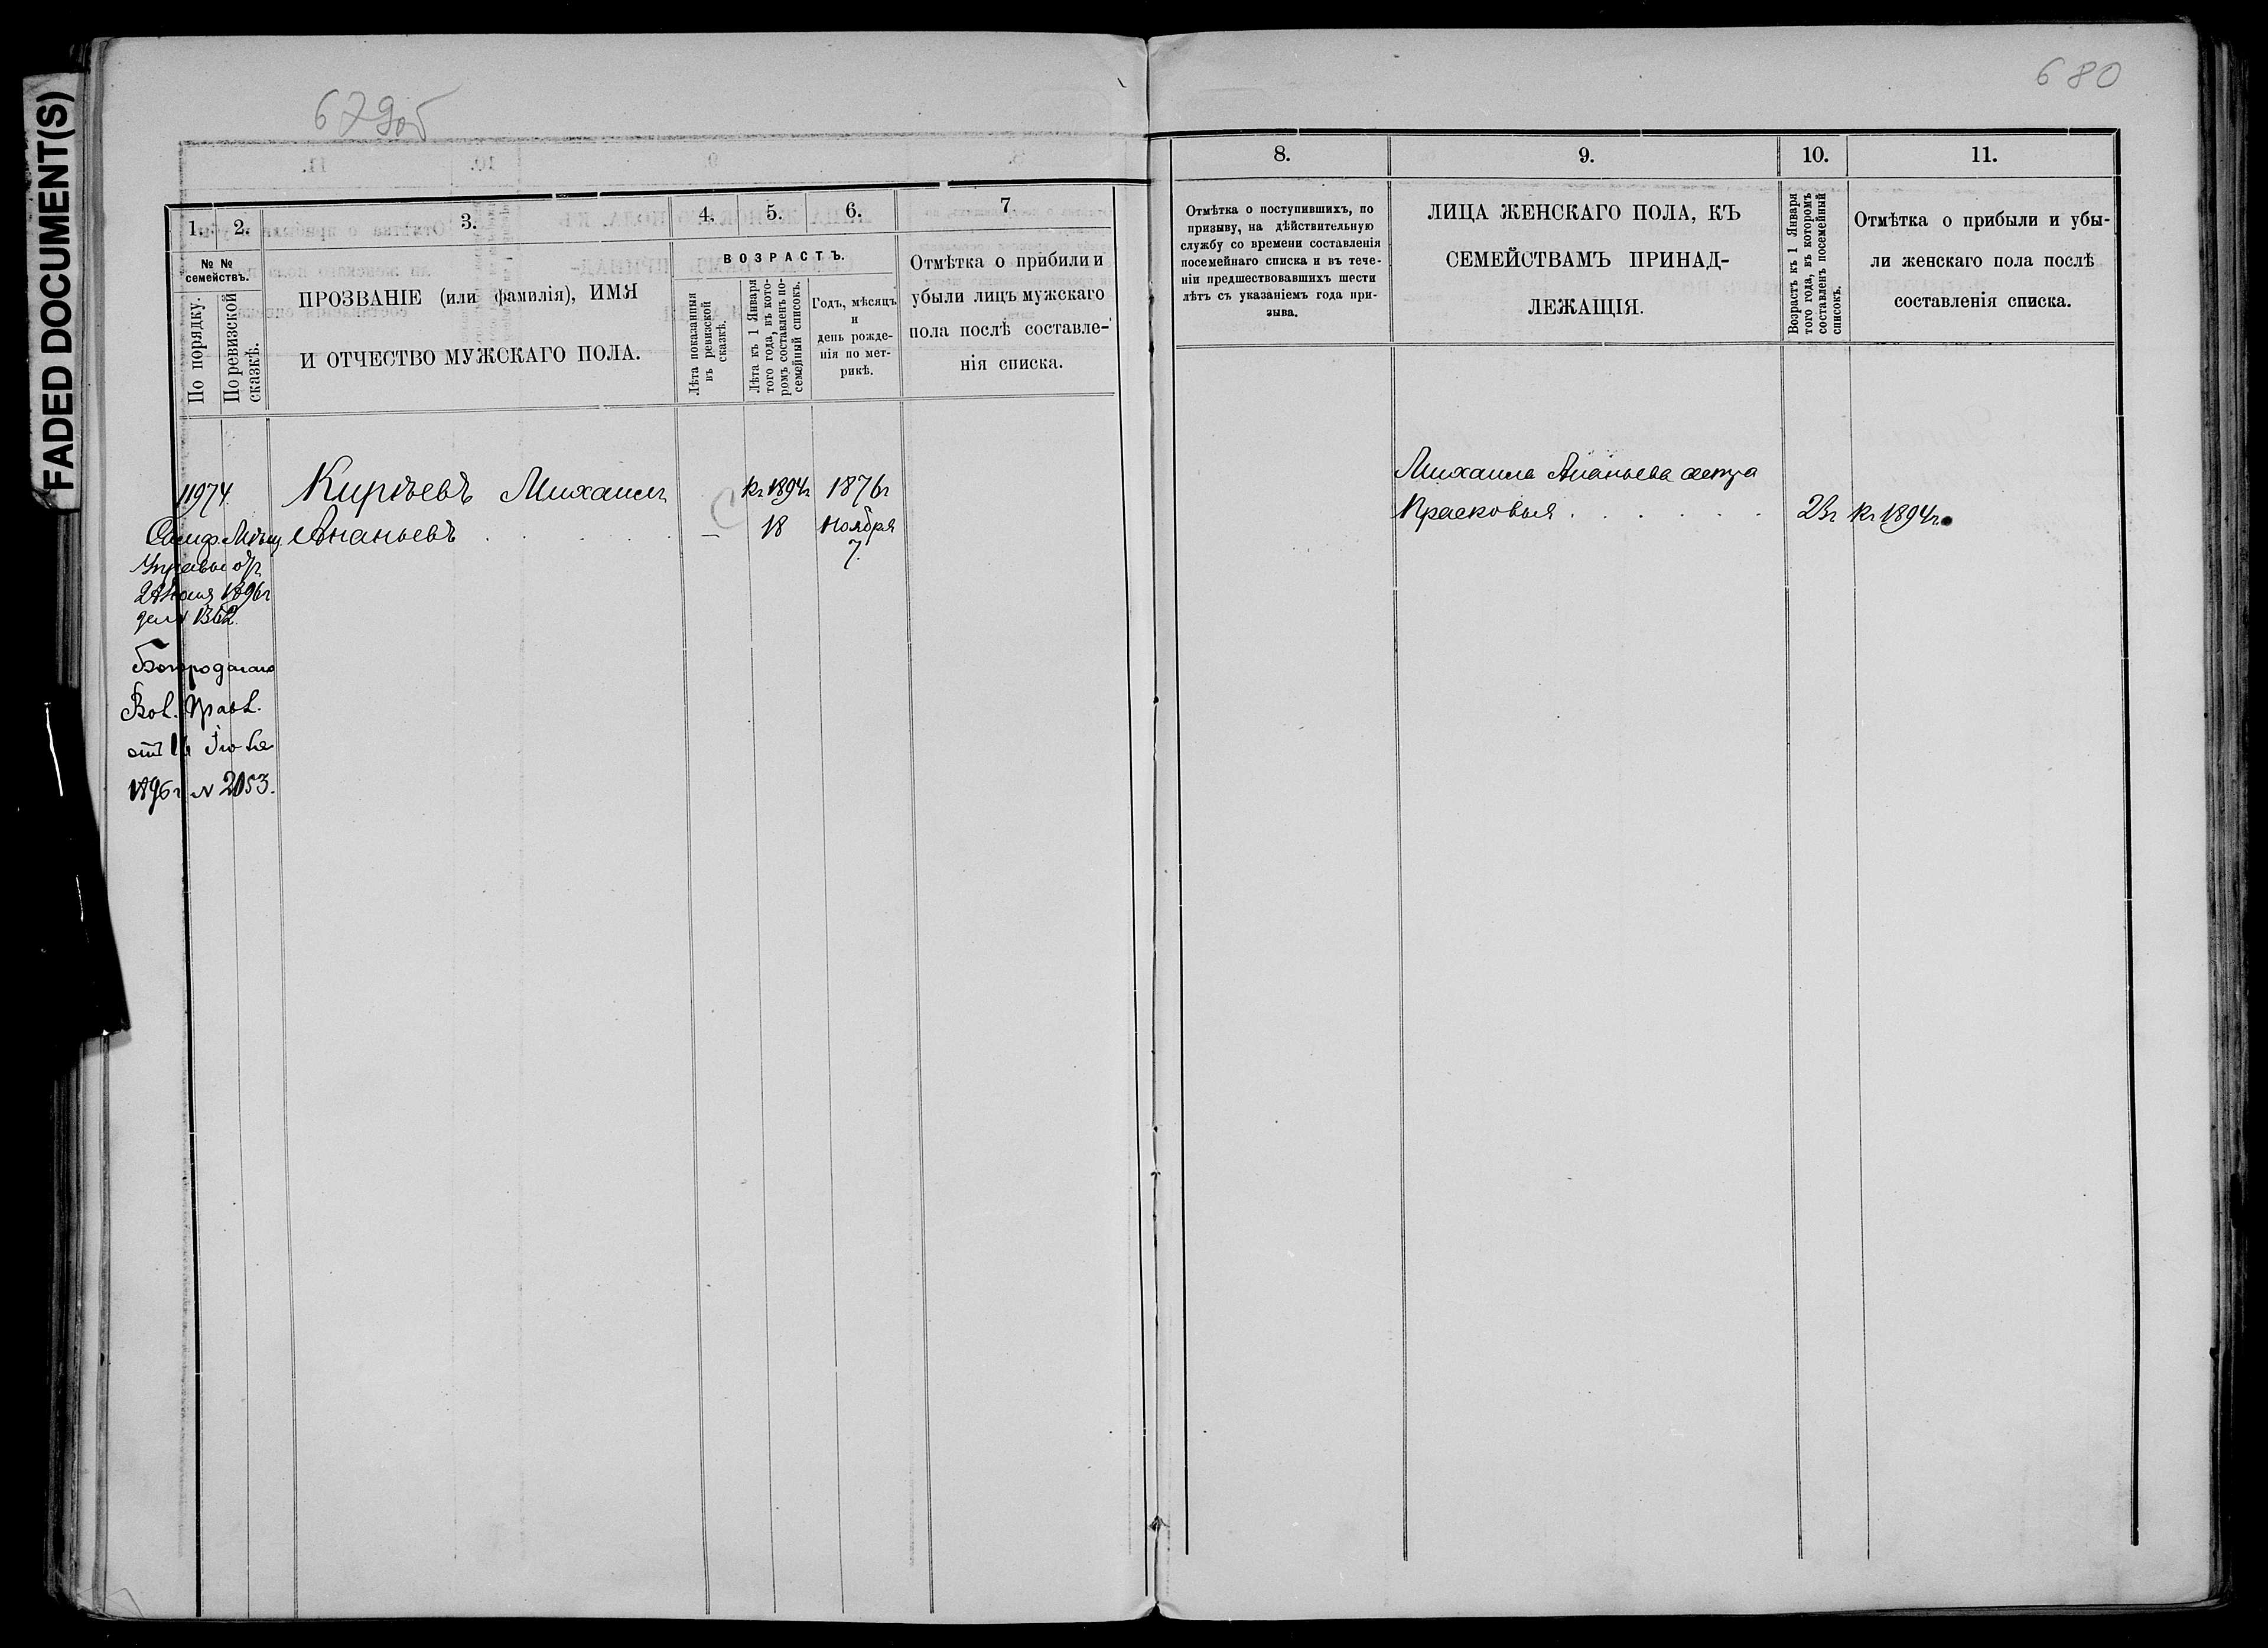 FADED DOCUMENT(S)
679об
1. 2. 3. 4. 5. 6. 7
№ №
семействъ.
По порядку.
По ревизской
сказкѣ.
ПРОЗВАНІЕ (или фамилія), ИМЯ
И ОТЧЕСТВО МУЖСКАГО ПОЛА.
ВОЗРАСТЪ.
Лѣта показанныя
въ ревизской
сказкѣ.
Лѣта къ 1 Января
того года, въ кото-
ромъ составленъ по-
семейный списокъ.
Годъ, мѣсяцъ
и
день рожде-
нія по мет-
рикѣ.
Отмѣтка о прибыли и
убыли лицъ мужскаго
пола послѣ составле-
нія списка.
11974. Кирѣевъ Михаилъ к. 1894г 1876г
Ананьевъ — 18 Ноября
7.
Симф. Мѣщ.
Управы
1896г
Вол. Правл.
от Іюля
1896г № 2053.
680
8. 9. 10. 11.
Отмѣтка о поступившихъ, по
призыву, на дѣйствительную
службу со времени составленія
посемейнаго списка и въ тече-
ніи предшествовавшихъ шести
лѣтъ съ указаніемъ года при-
зыва.
ЛИЦА ЖЕНСКАГО ПОЛА, КЪ
СЕМЕЙСТВАМЪ ПРИНАД-
ЛЕЖАЩІЯ.
Возрастъ къ 1 Января
того года, въ которомъ
составленъ посемейный
списокъ.
Отмѣтка о прибыли и убы-
ли женскаго пола послѣ
составленія списка.
Михаила Ананьева сестра
Прасковья 23г к. 1894г.